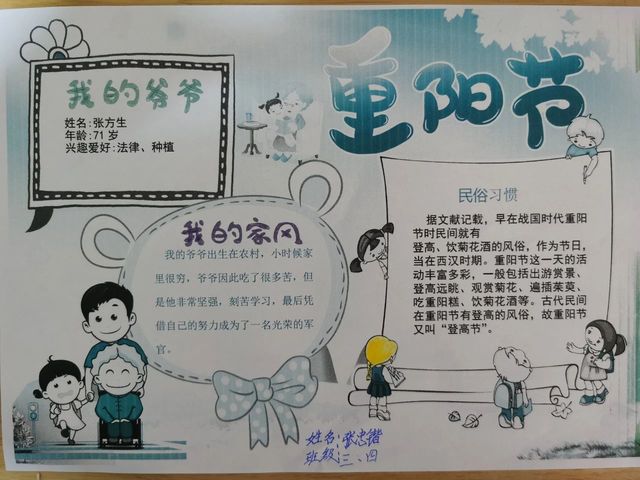 重阳节
我的爷爷
姓名:张方生
年龄:71 岁
兴趣爱好:法律、种植
我的家风
我的爷爷出生在农村，小时候家
里很穷，爷爷因此吃了很多苦，但
是他非常坚强，刻苦学习，最后凭
借自己的努力成为了一名光荣的军
官。
民俗习惯
据文献记载，早在战国时代重阳
节时民间就有
登高、饮菊花酒的风俗，作为节日，
当在西汉时期。重阳节这一天的活
动丰富多彩，一般包括出游赏景、
登高远眺、观赏菊花、遍插茱萸、
吃重阳糕、饮菊花酒等。古代民间
在重阳节有登高的风俗，故重阳节
又叫“登高节”。
姓名:张忠锴
班级:三、四